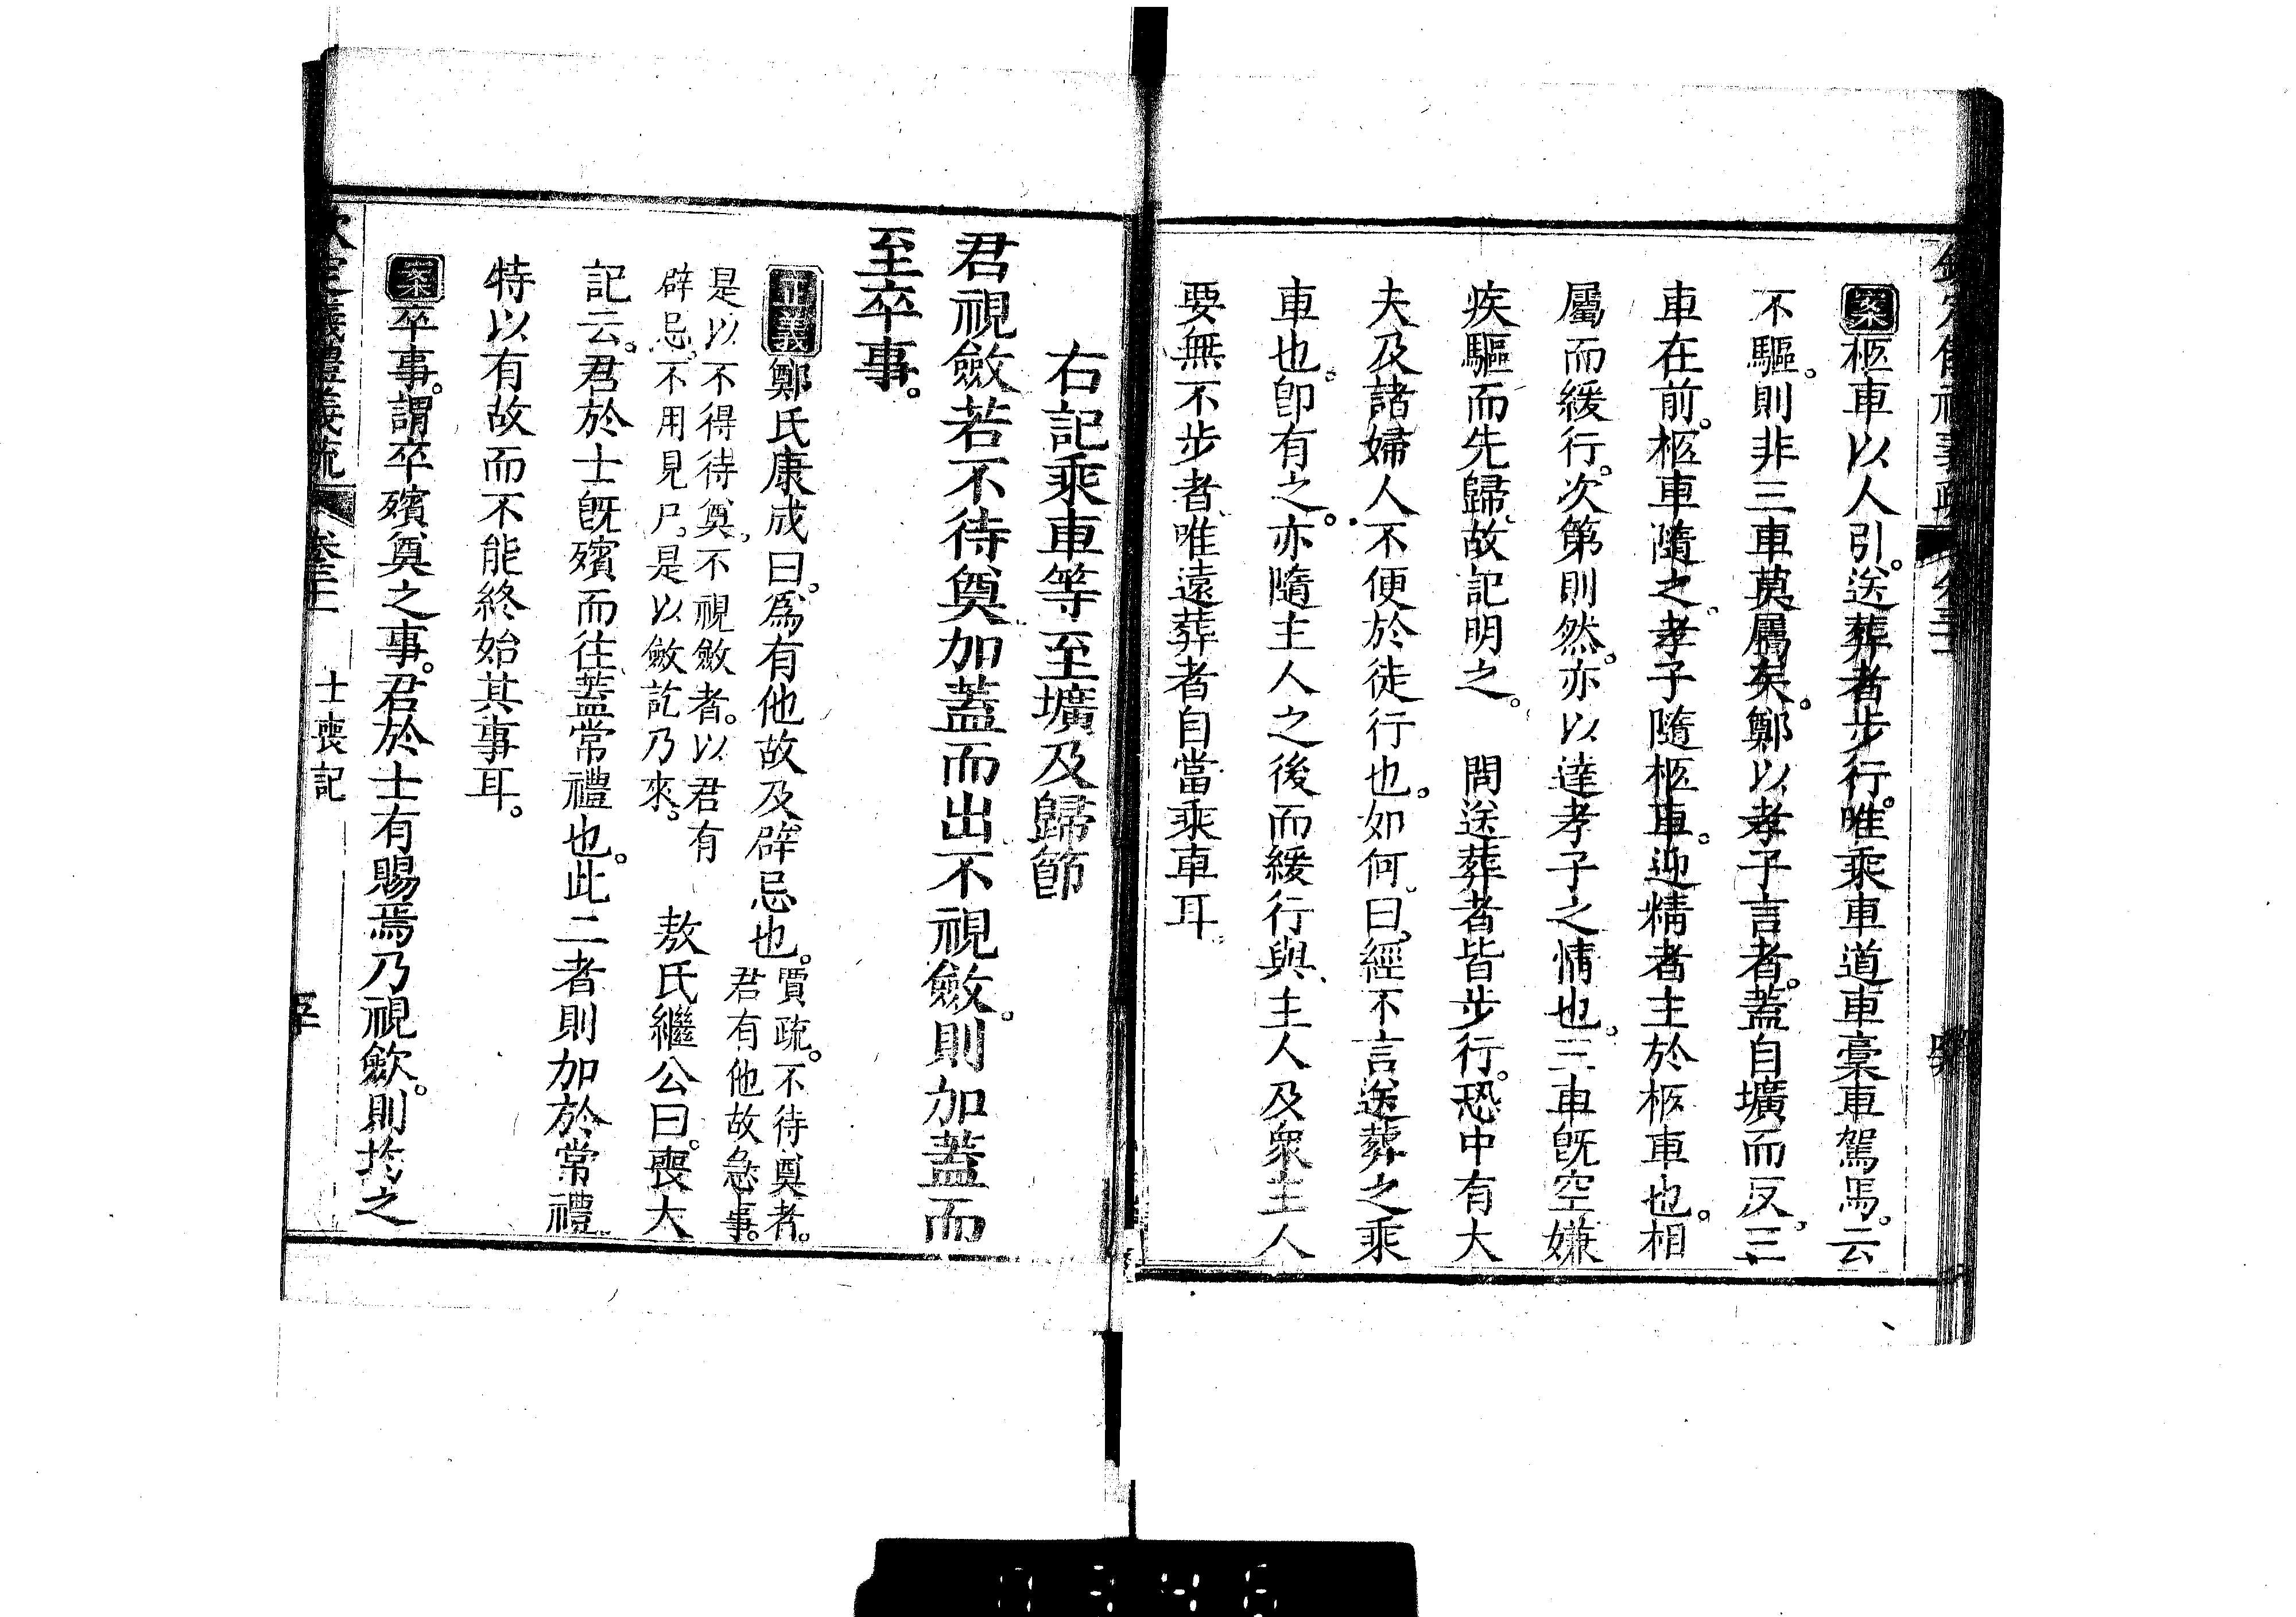 案柩車以人引。送葬者步行。唯乘車道車稾車駕馬。云
不驅。則非三車莫屬矣。鄭以孝子言者。蓋自壙而反。三
車在前。柩車隨之。孝子隨柩車。迎精者主於柩車也。相
屬而緩行。次第則然。亦以達孝子之情也。三車既空嫌
疾驅而先歸。故記明之。　問送葬者皆步行。恐中有大
夫及諸婦人不便於徒行也。如何。曰。經不言送葬之乘
車也。卽有之。亦隨主人之後而緩行與、主人及衆主人
要無不步者。唯遠葬者自當乘車耳。
右記乘車等至壙及歸節
君視斂若不待奠加蓋而出不視斂。則加蓋而
至卒事。
正義鄭氏康成曰。爲有他故及辟忌也。賈疏。不待奠者。
君有他故急事。
是以不得待奠。不視斂者。以君有
辟忌。不用見尸。是以斂訖乃來。　敖氏繼公曰。喪大
記云。君於士既殯而往蓋常禮也。此二者則加於常禮
特以有故而不能終始其事耳。
案卒事。謂卒殯奠之事。君於士有賜焉乃視斂。則於之
欽定儀禮義疏　卷三十一　士喪記